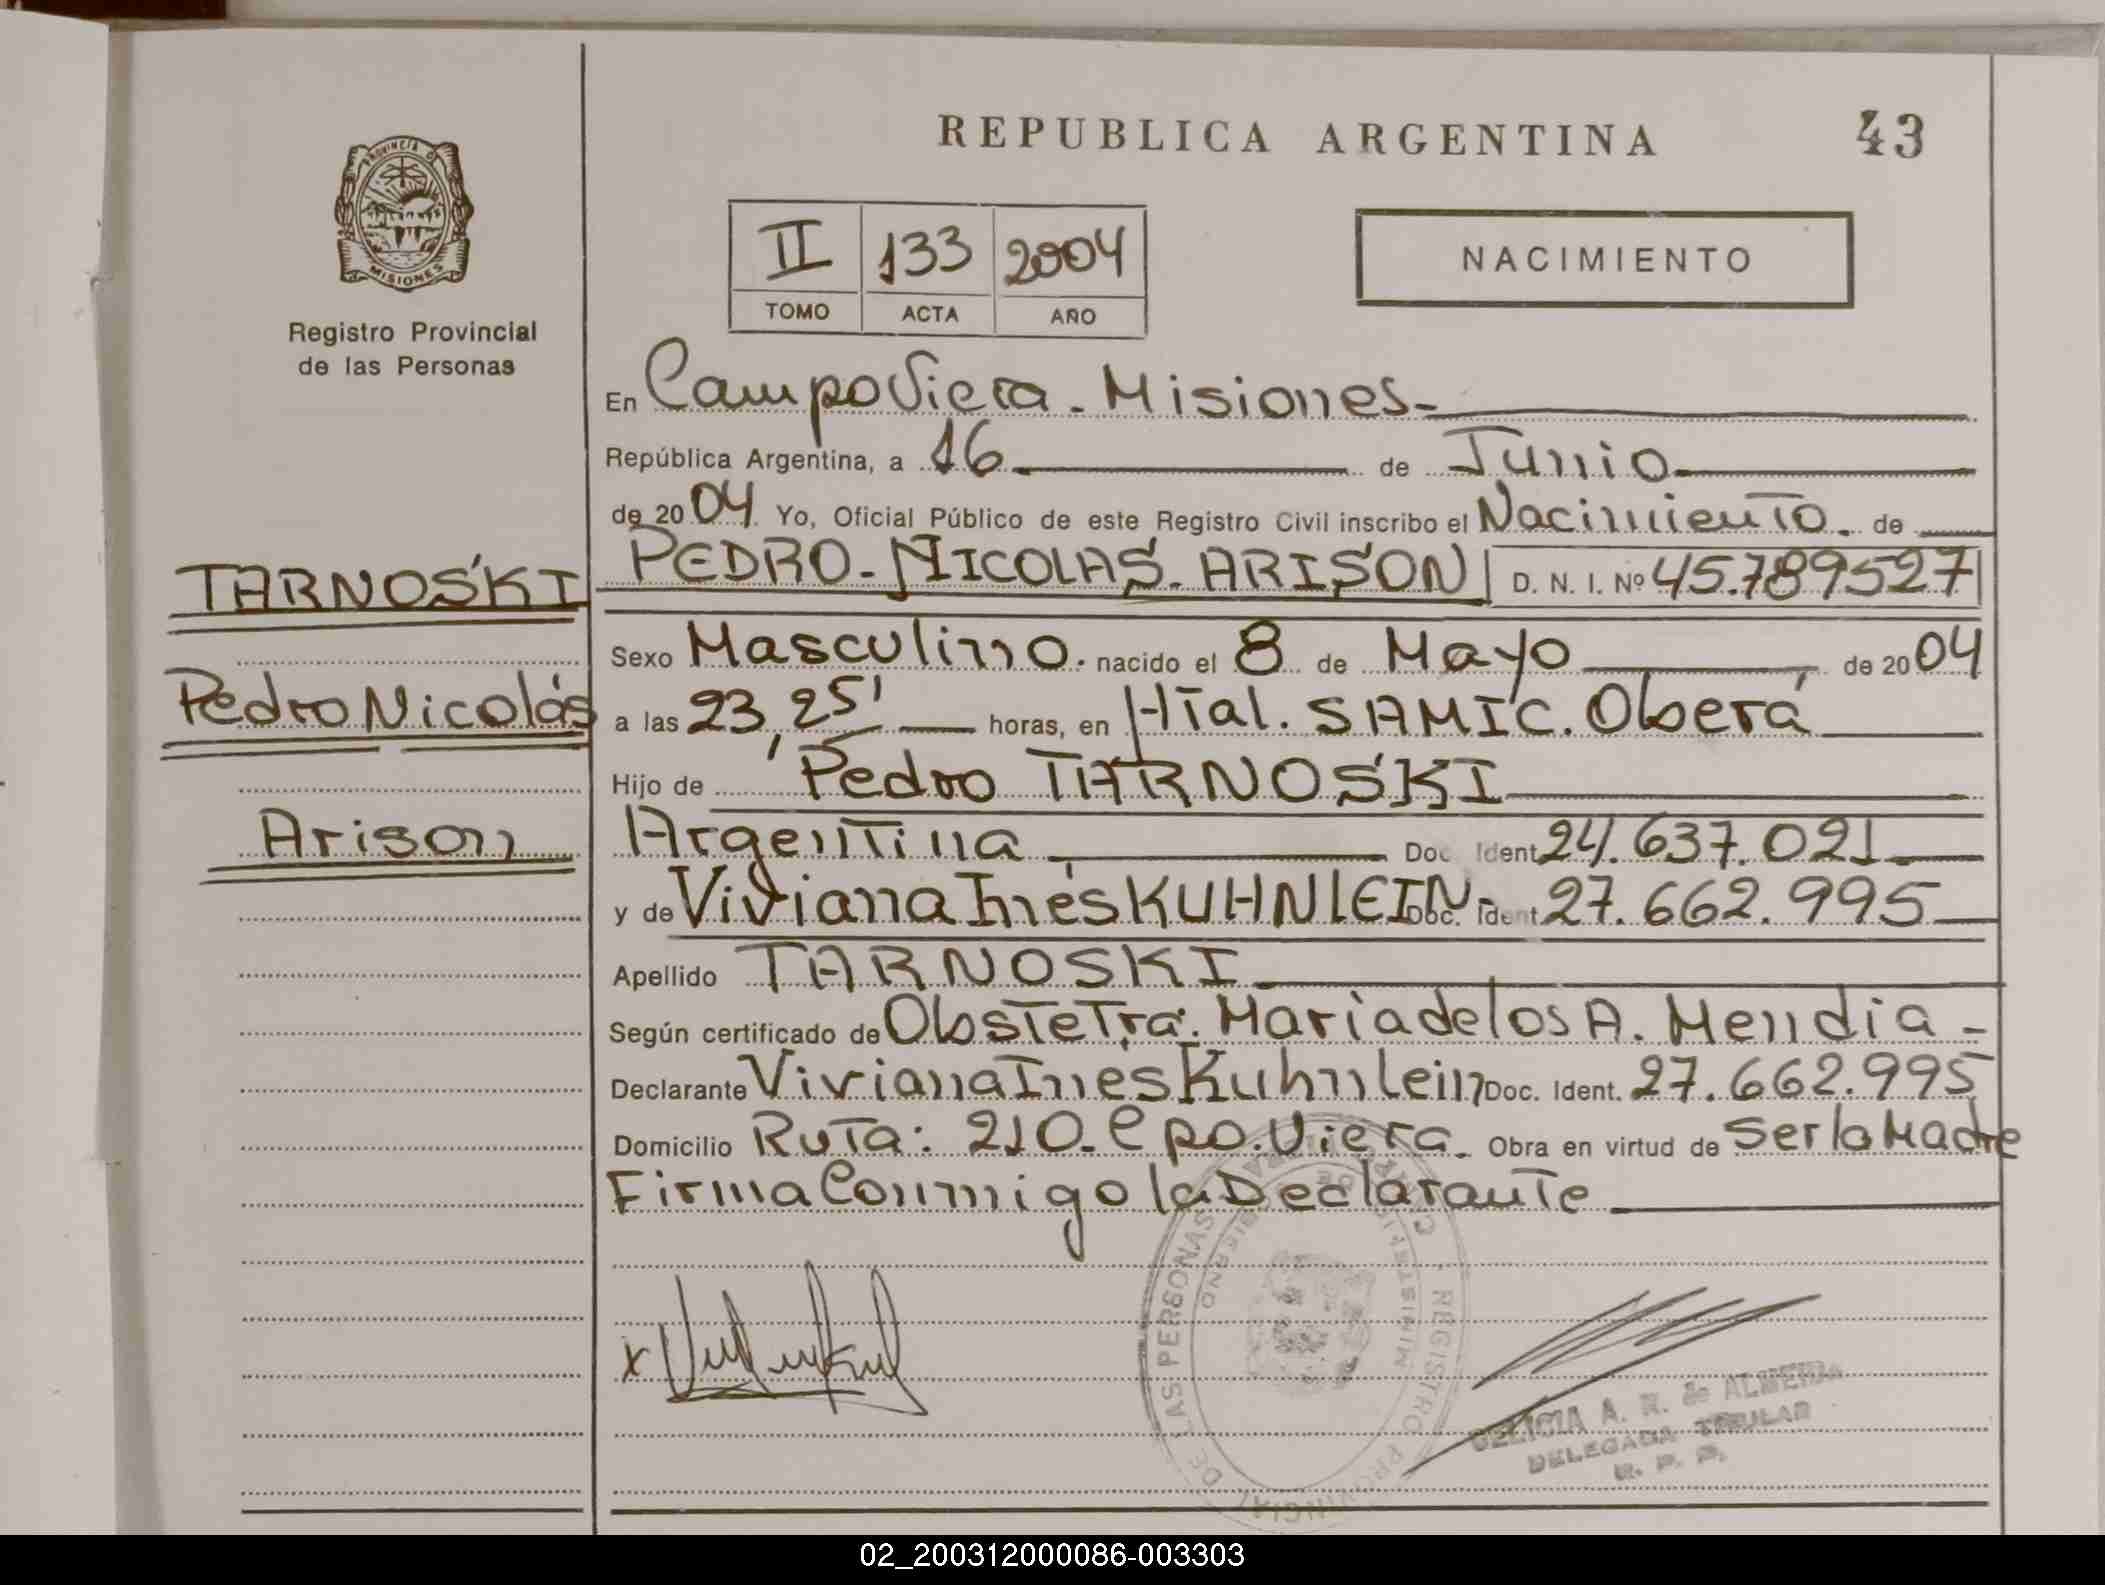 REPUBLICA ARGENTINA
43
PROVINCIA DE
MISIONES
Registro Provincial
de las Personas
II 133 2004
TOMO ACTA AÑO
NACIMIENTO
En Campo Viera - Misiones -
República Argentina, a 16 de Junio
de 2004 Yo, Oficial Público de este Registro Civil inscribo el Nacimiento de
PEDRO - NICOLÁS - ARISON D. N. I. Nº 45.789527
TARNOSKI
Sexo Masculino. nacido el 8 de Mayo de 2004
Pedro Nicolás
a las 23,25' horas, en Htal. SAMIC. Oberá
Hijo de Pedro TARNOSKI
Arison
Argentina Doc. Ident. 24.637.021
y de Viviana Inés KUHNLEIN - Doc. Ident. 27.662.995
Apellido TARNOSKI
Según certificado de Obstetra: Maria de los A. Mendia -
Declarante Viviana Inés Kuhnlein Doc. Ident. 27.662.995
Domicilio Ruta: 210 - Cpo. Viera. Obra en virtud de ser la Madre
Firma Conmigo la Declarante
REGISTRO PROVINCIAL DE LAS PERSONAS
MINISTERIO DE GOBIERNO
x
DELICIA A. R. de ALMEIDA
DELEGADA TITULAR
R. P. P.
02_200312000086-003303